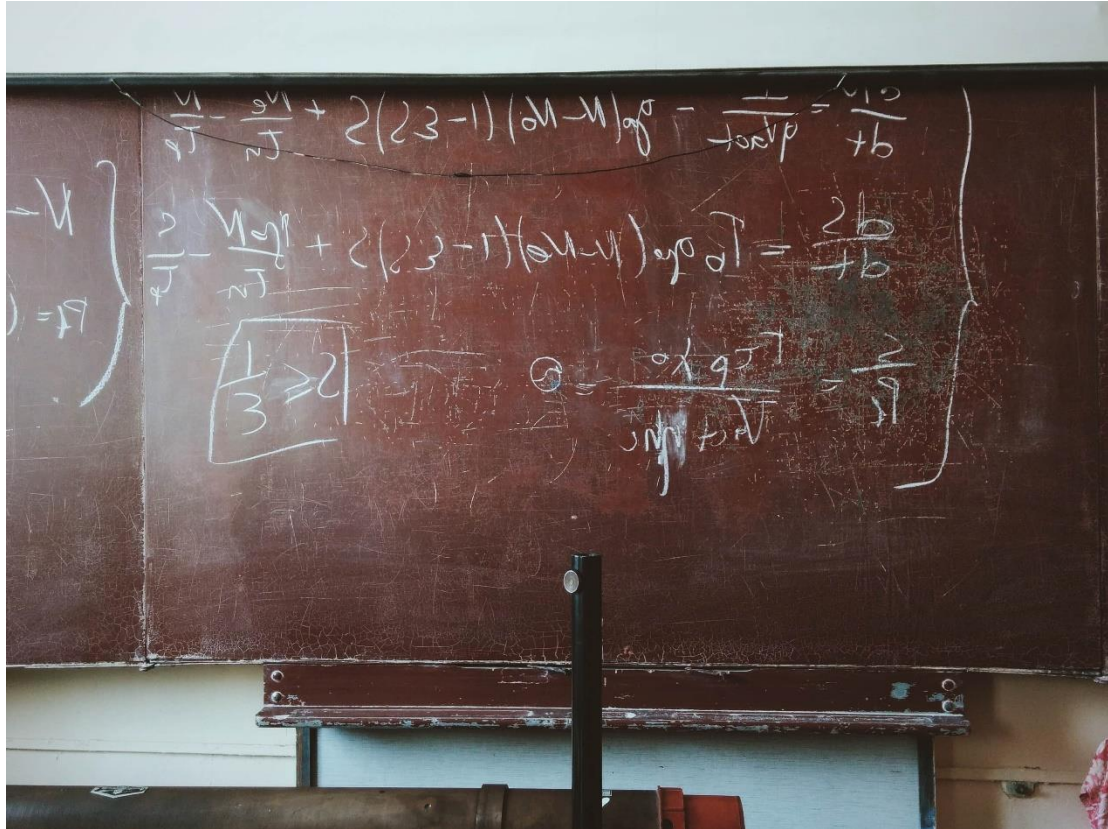 dN/dt = I/qVact - g₀(N-N₀)(1-εS)S + Ne/τn - N/τp
dS/dt = Γ₀g₀(N-N₀)(1-εS)S + N/τn - S/τp
S/Pf = Γτpλ₀/Vact ηhc = ϑ
S ≤ 1/ε
N-
Pf = (